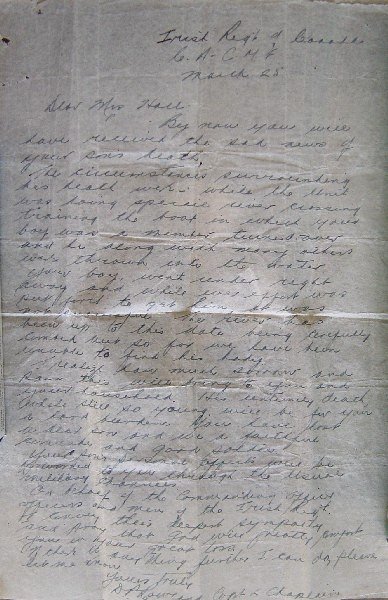 Irish Reg't of Canada
C.A - C.M.F
March 28
Dear Mrs Hall
By now you will
have received the sad news of
your sons death.
The circumstances surrounding
his death were - while the unit
was having special river crossing
training the boat in which your
boy was a member turned over
and he along with many others
was thrown into the water
Your boy went under right
away and while every effort was
put forth to get him it was
The river has
been up to this date being carefully
combed but so far we have been
unable to find his body.
I realize how much sorrow and
pain this will bring to you and
your household. His untimely death
while still so young will be for you
a hard burden. You have lost
a dear son and we a faithful
comrade and good soldier.
Your sons personal effects will be
forwarded to you through the usual
military channels.
On behalf of the Commanding Officer
officers and men of the Irish Regt.
I convey their deepest sympathy
and pray that God will greatly comfort
you in your great loss.
If there is anything further I can do please
let me know
Yours truly
Capt & Chaplain